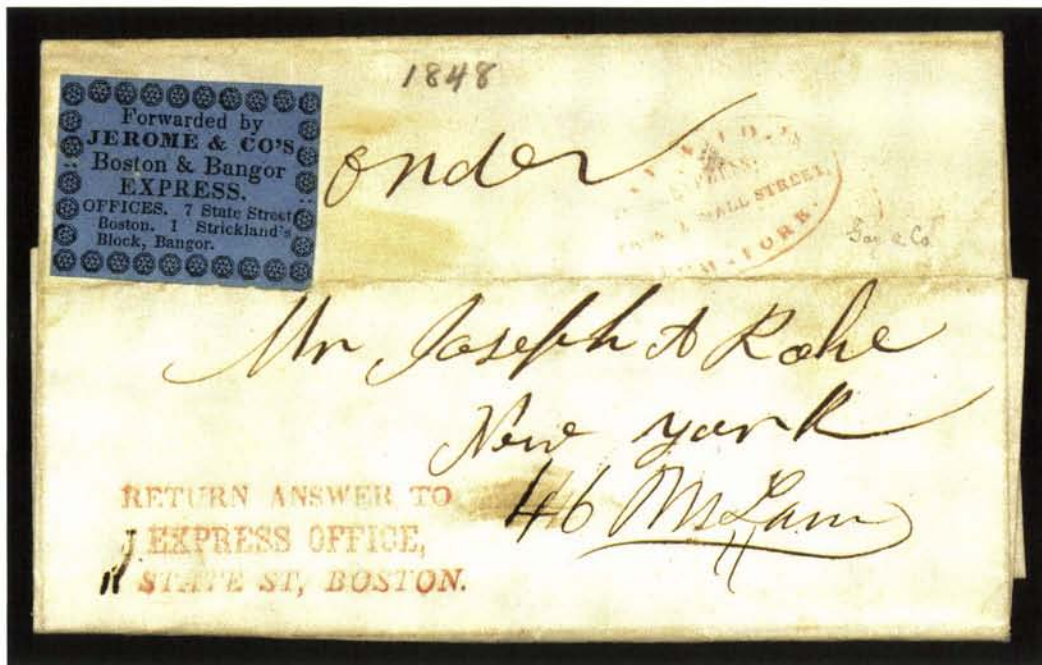 1848
Forwarded by
JEROME & CO'S
Boston & Bangor
EXPRESS.
OFFICES. 7 State Street
Boston. 1 Strickland's
Block, Bangor.
onder
WALL STREET,
YORK.
Gay & Co
Mr Joseph A Rohe
New York
46
RETURN ANSWER TO
EXPRESS OFFICE,
STATE ST, BOSTON.